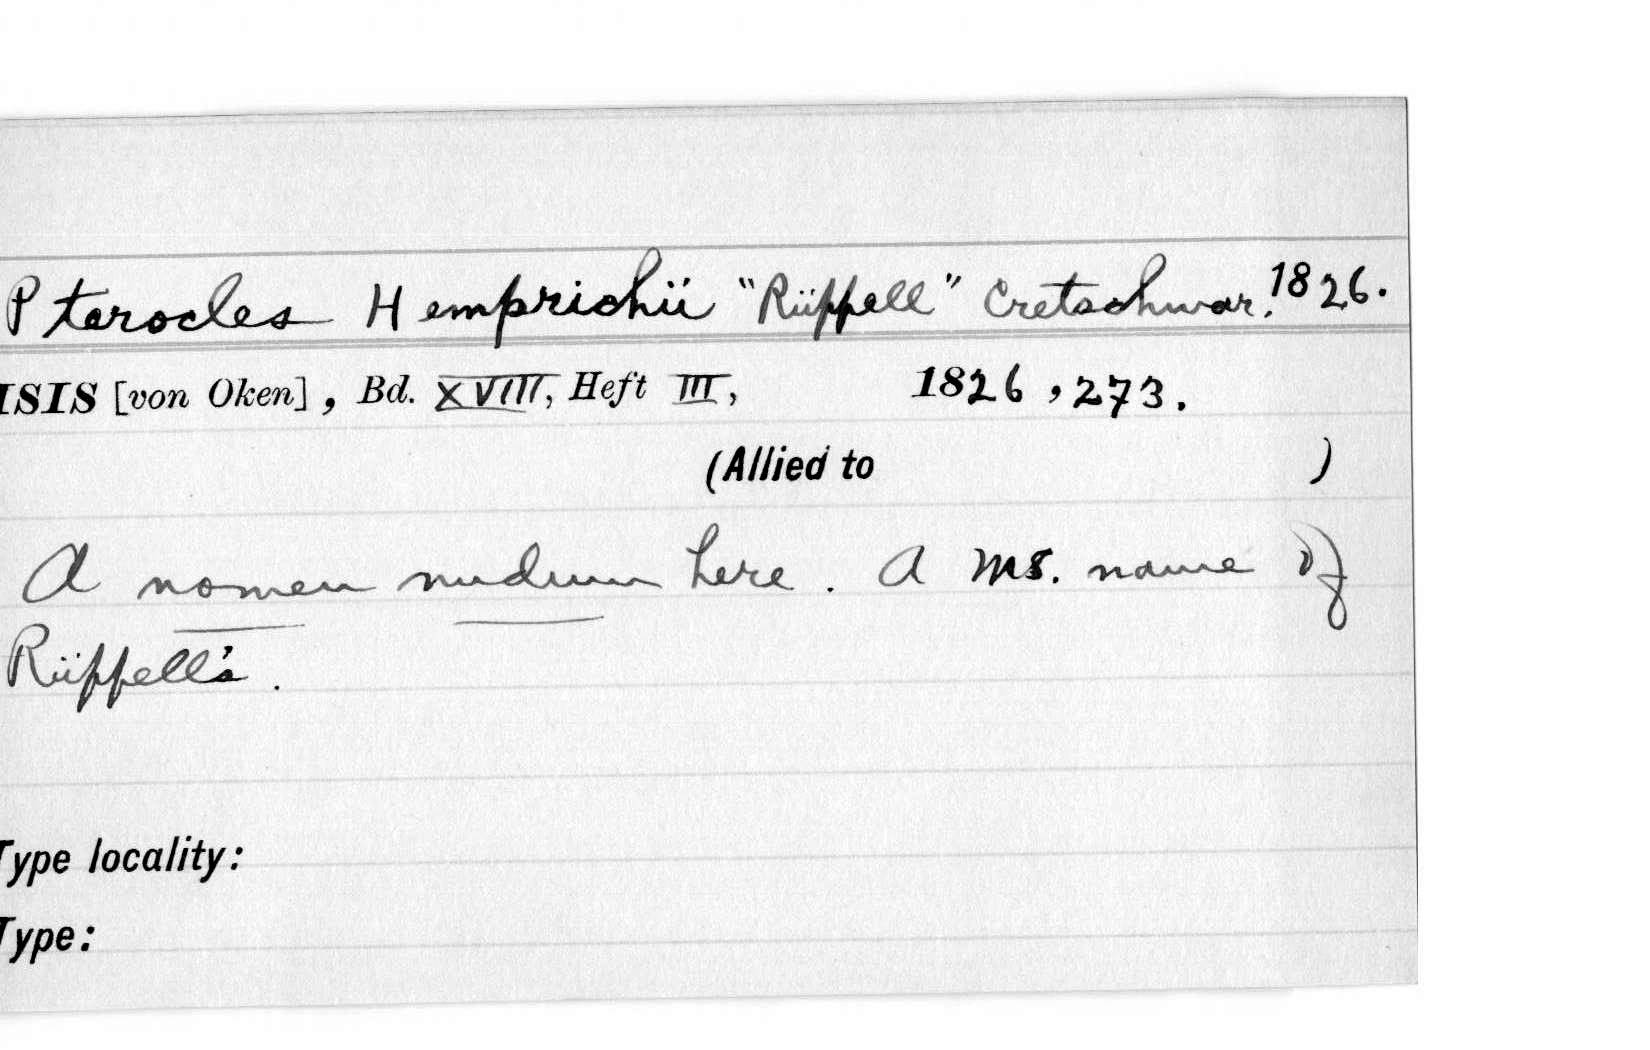 Pterocles Hemprichii "Rüppell" Cretschmar. 1826.
ISIS [von Oken], Bd. XVIII, Heft III, 1826, 273.
(Allied to )
A nomen nudum here. A MS. name of
Rüppell's.
Type locality:
Type: